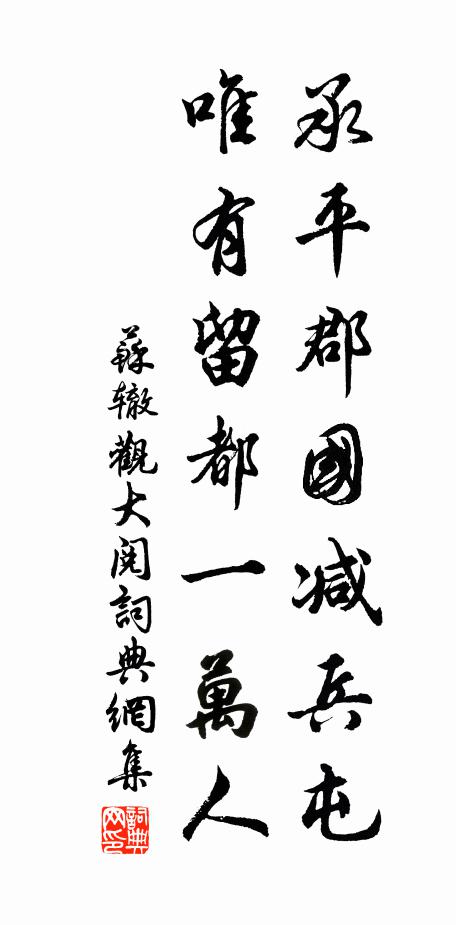 承平郡國減兵屯
唯有留都一萬人
蘇辙觀大閱詞典網集
詞典网印